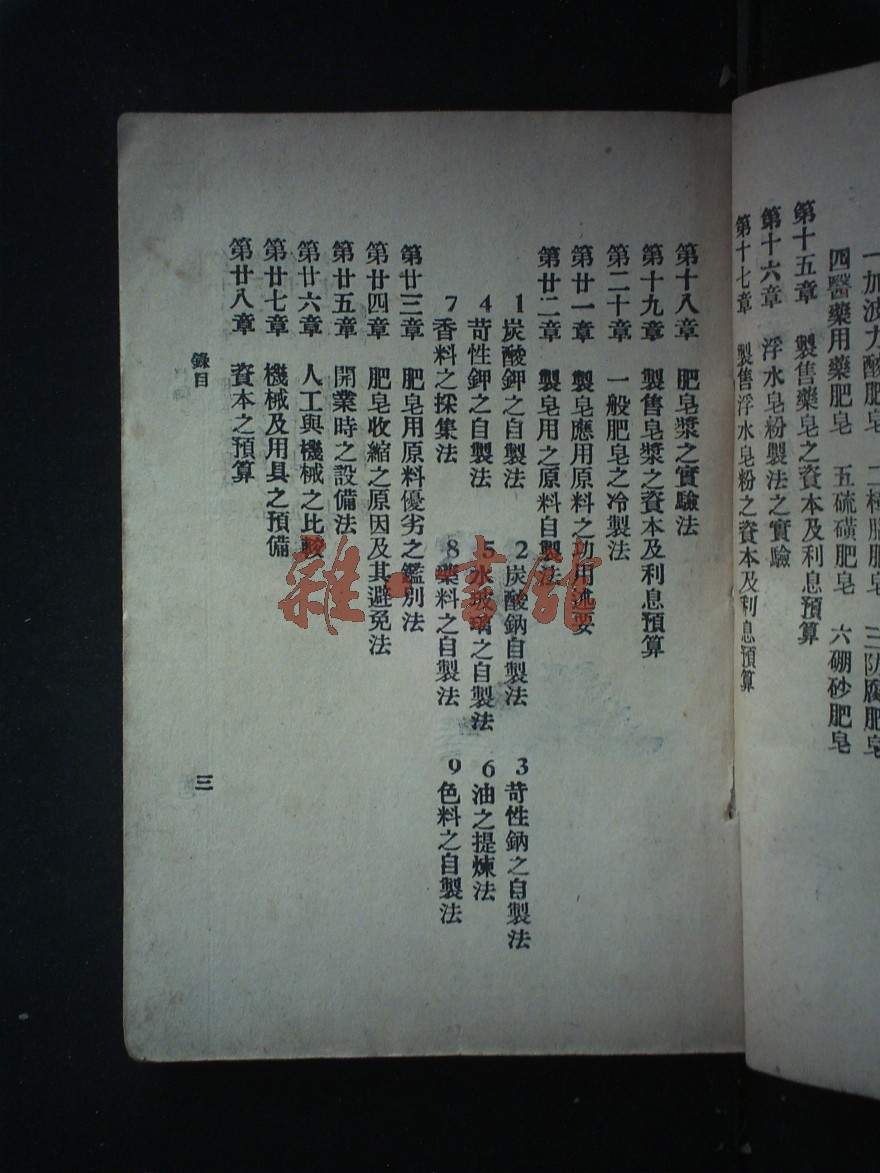 一加波力酸肥皂　二棰腦肥皂　三防腐肥皂
四醫藥用藥肥皂　五硫磺肥皂　六硼砂肥皂
第十五章　製售藥皂之資本及利息預算
第十六章　浮水皂粉製法之實驗
第十七章　製售浮水皂粉之資本及利息預算
第十八章　肥皂漿之實驗法
第十九章　製售皂漿之資本及利息預算
第二十章　一般肥皂之冷製法
第廿一章　製皂應用原料之功用述要
第廿二章　製皂用之原料自製法
1 炭酸鉀之自製法　2 炭酸鈉自製法　3 苛性鈉之自製法
4 苛性鉀之自製法　5 水玻璃之自製法　6 油之提煉法
7 香料之採集法　8 藥料之自製法　9 色料之自製法
第廿三章　肥皂用原料優劣之鑑別法
第廿四章　肥皂收縮之原因及其避免法
第廿五章　開業時之設備法
第廿六章　人工與機械之比較
第廿七章　機械及用具之預備
第廿八章　資本之預算
錄目
三
雜·書館